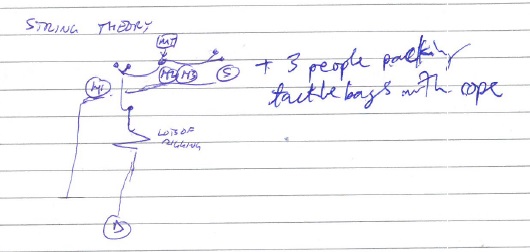 STRING THEORY
MT
M1
M2 M3
S
+ 3 people packing
tackle bags with rope
LOTS OF
RIGGING
D